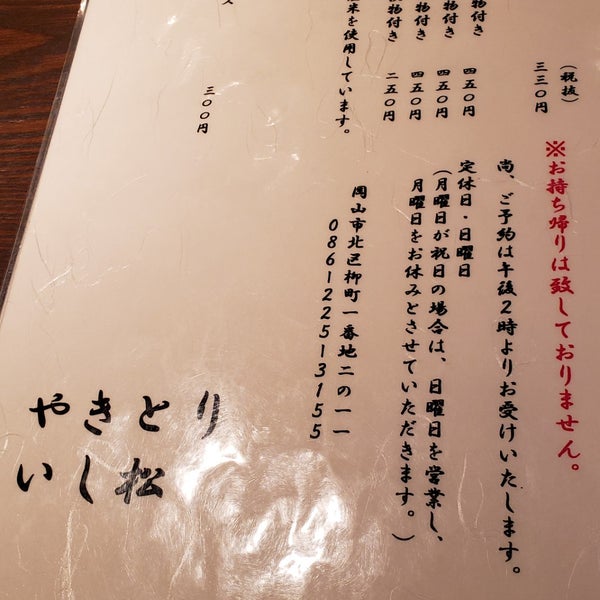 (税抜)
三三〇円
※お持ち帰りは致しておりません。
尚、ご予約は午後2時よりお受けいたします。
物付き
四五〇円
物付き
四五〇円
物付き
四五〇円
物付き
二五〇円
定休日・日曜日
(月曜日が祝日の場合は、日曜日を営業し、
月曜日をお休みとさせていただきます。)
米を使用しています。
岡山市北区柳町一番地二の一一
0861225131​55
ス
三〇〇円
やきとり
いし松